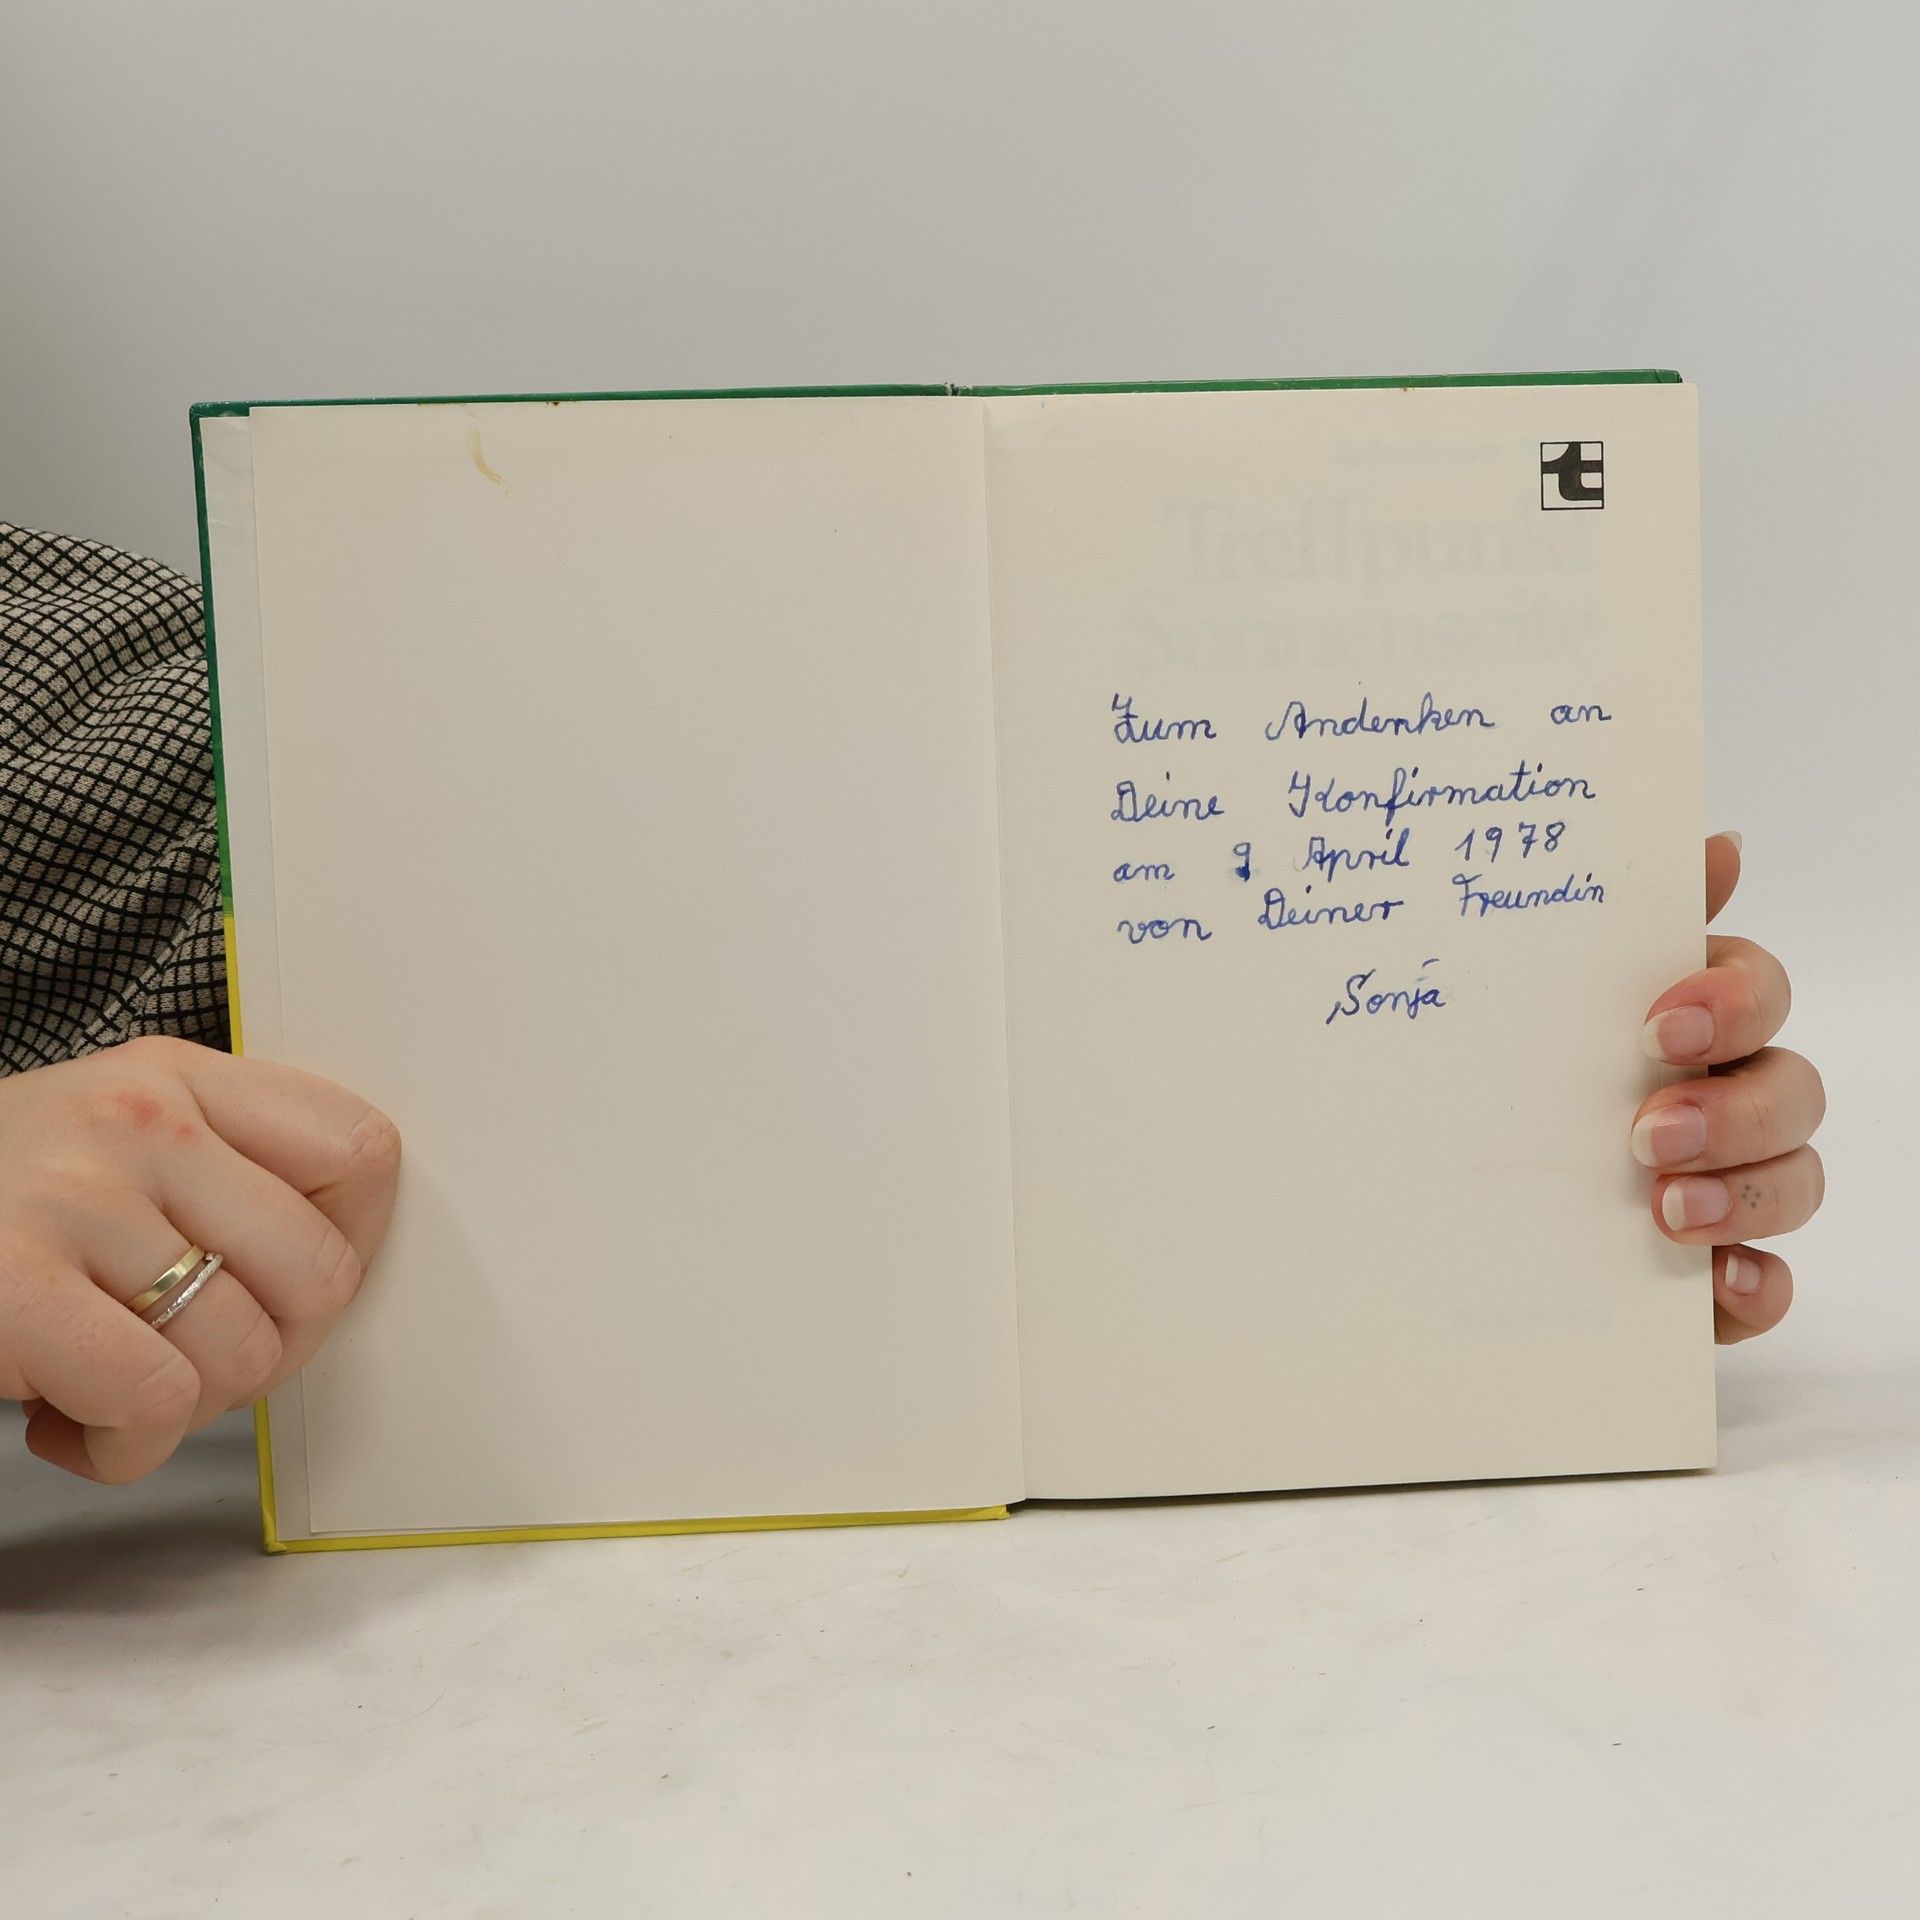 t
Zum Andenken an
Deine Konfirmation
am 9 April 1978
von Deiner Freundin
Sonja